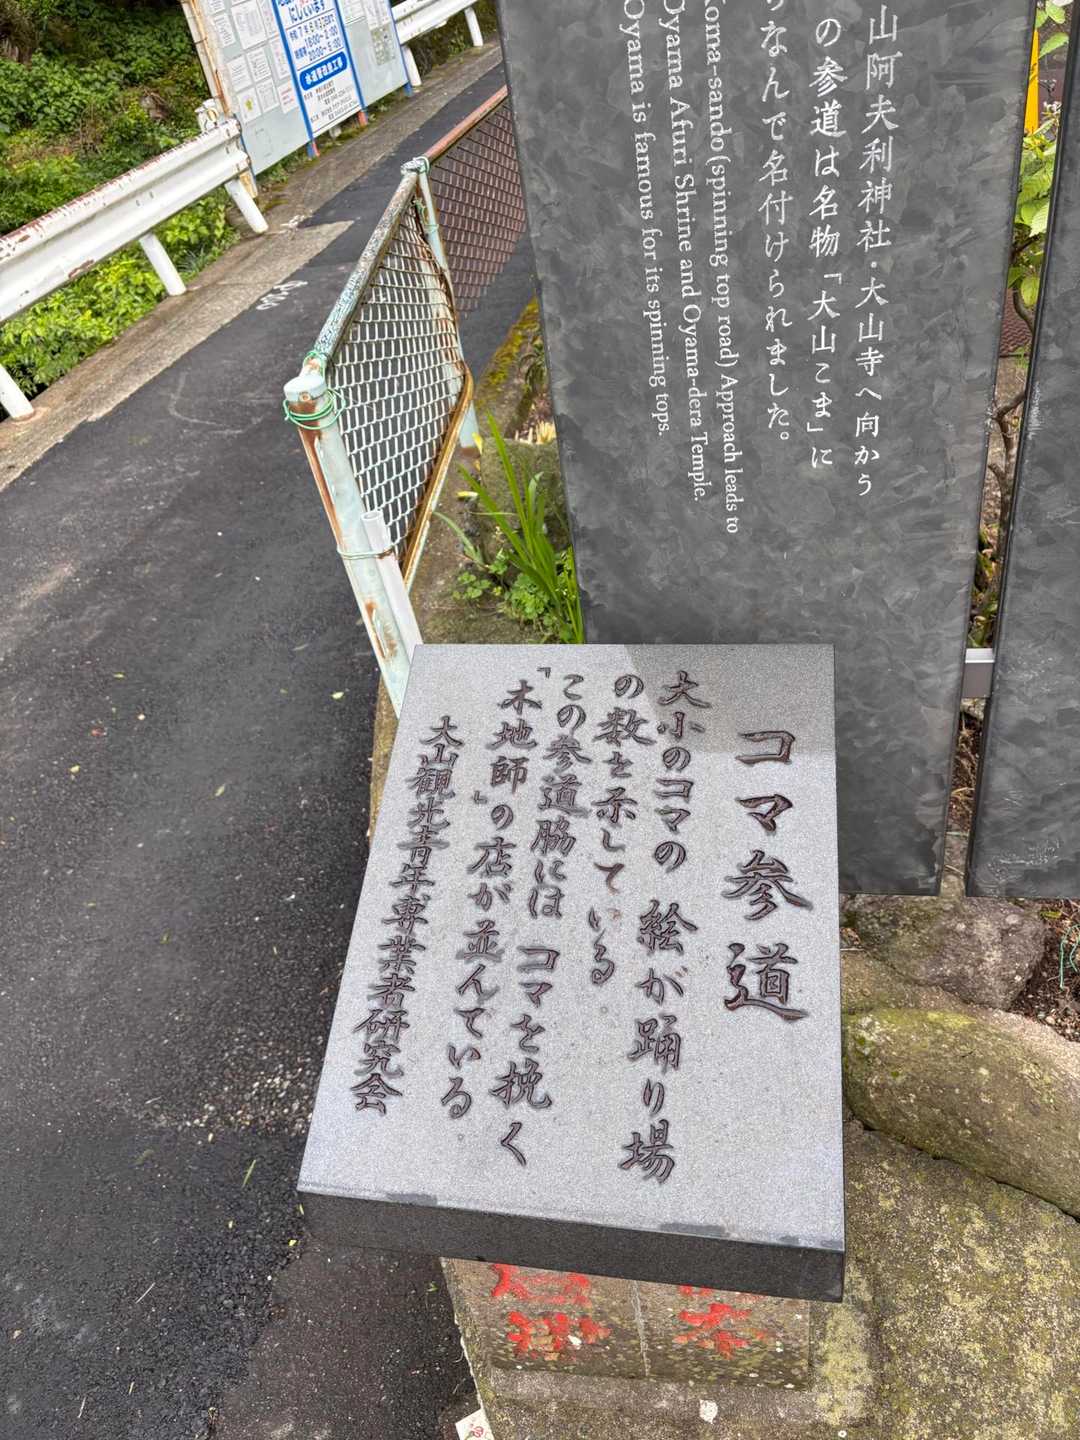 コマ参道
大小のコマの 絵が踊り場
の数を示している
この参道脇には コマを挽く
「木地師」の店が並んでいる
大山観光青年専業者研究会
山阿夫利神社・大山寺へ向かう
の参道は名物「大山こま」に
なんで名付けられました。
Koma-sando (spinning top road) Approach leads to
Oyama Afuri Shrine and Oyama-dera Temple.
Oyama is famous for its spinning tops.
にしています
水道管取替工事